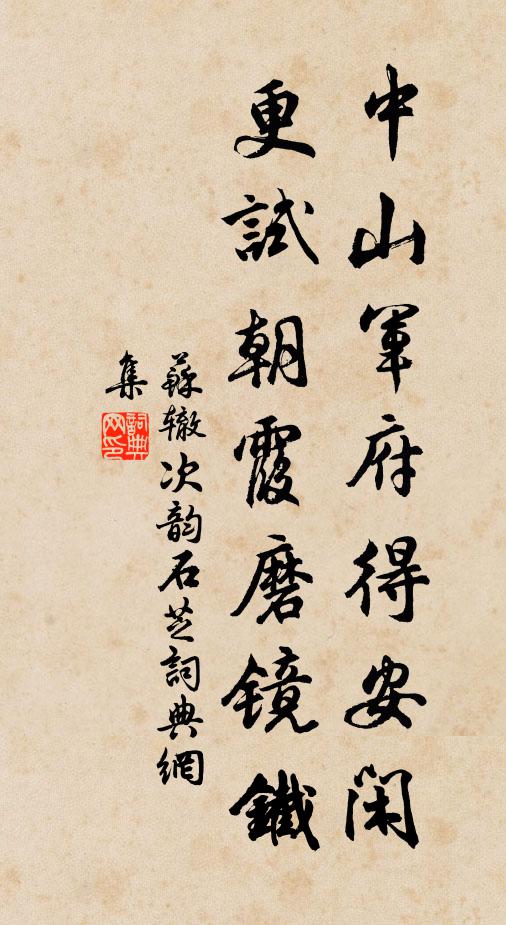 中山軍府得安閑
更試朝霞磨镜鐵
蘇辙次韵石芝詞典網
集
詞典网印